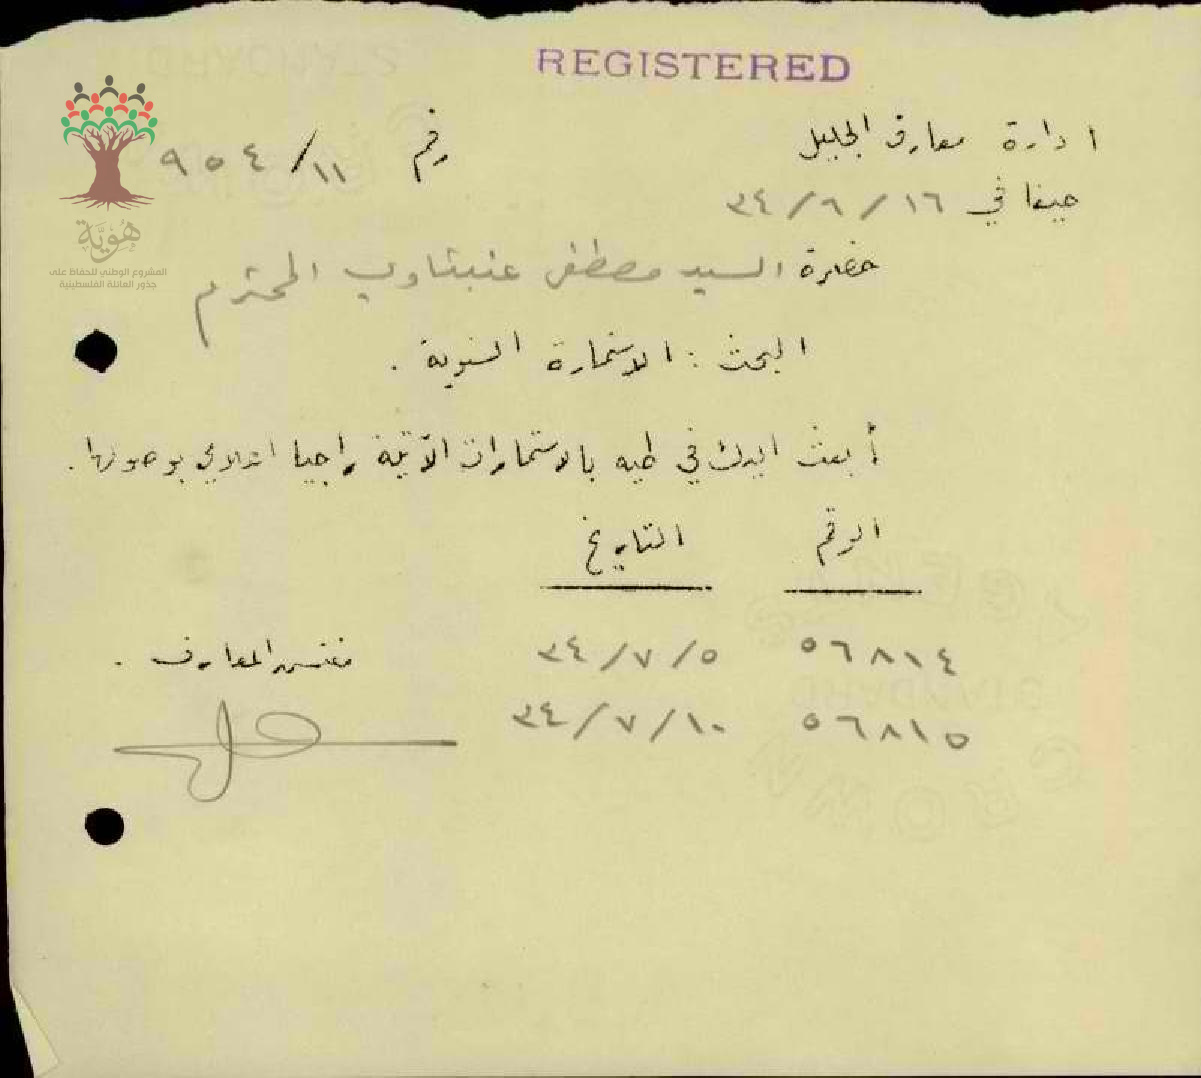 REGISTERED
ادارة معارف الجليل
رقم ١١/٩٥٤
حيفا في ١٦/٨/٣٤
هُوِيَّة
المشروع الوطني للحفاظ على
جذور العائلة الفلسطينية
حضرة السيد مصطفى عنبتاوي المحترم
البحث : الاستمارة السنوية .
أبعث اليك في طيه بالاستمارات الآتية راجيا اعلامي بوصولها .
الرقم التاريخ
٥٦٨١٤ ٥/٧/٣٤
مفتش المعارف .
٥٦٨١٥ ١٠/٧/٣٤